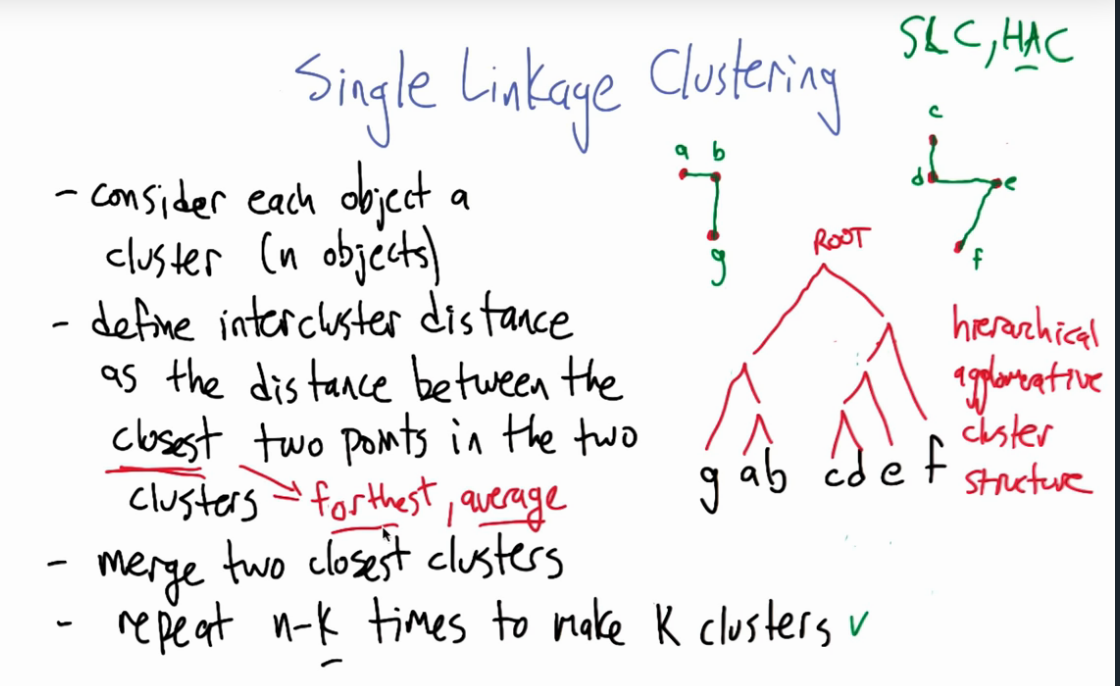 SLC, HAC
Single Linkage Clustering
- consider each object a
cluster (n objects)
- define intercluster distance
as the distance between the
closest two points in the two
clusters → farthest, average
- merge two closest clusters
- repeat n-k times to make K clusters ✓
a b
g
c
d e
f
ROOT
g ab cd e f
hierarchical
agglomerative
cluster
structure